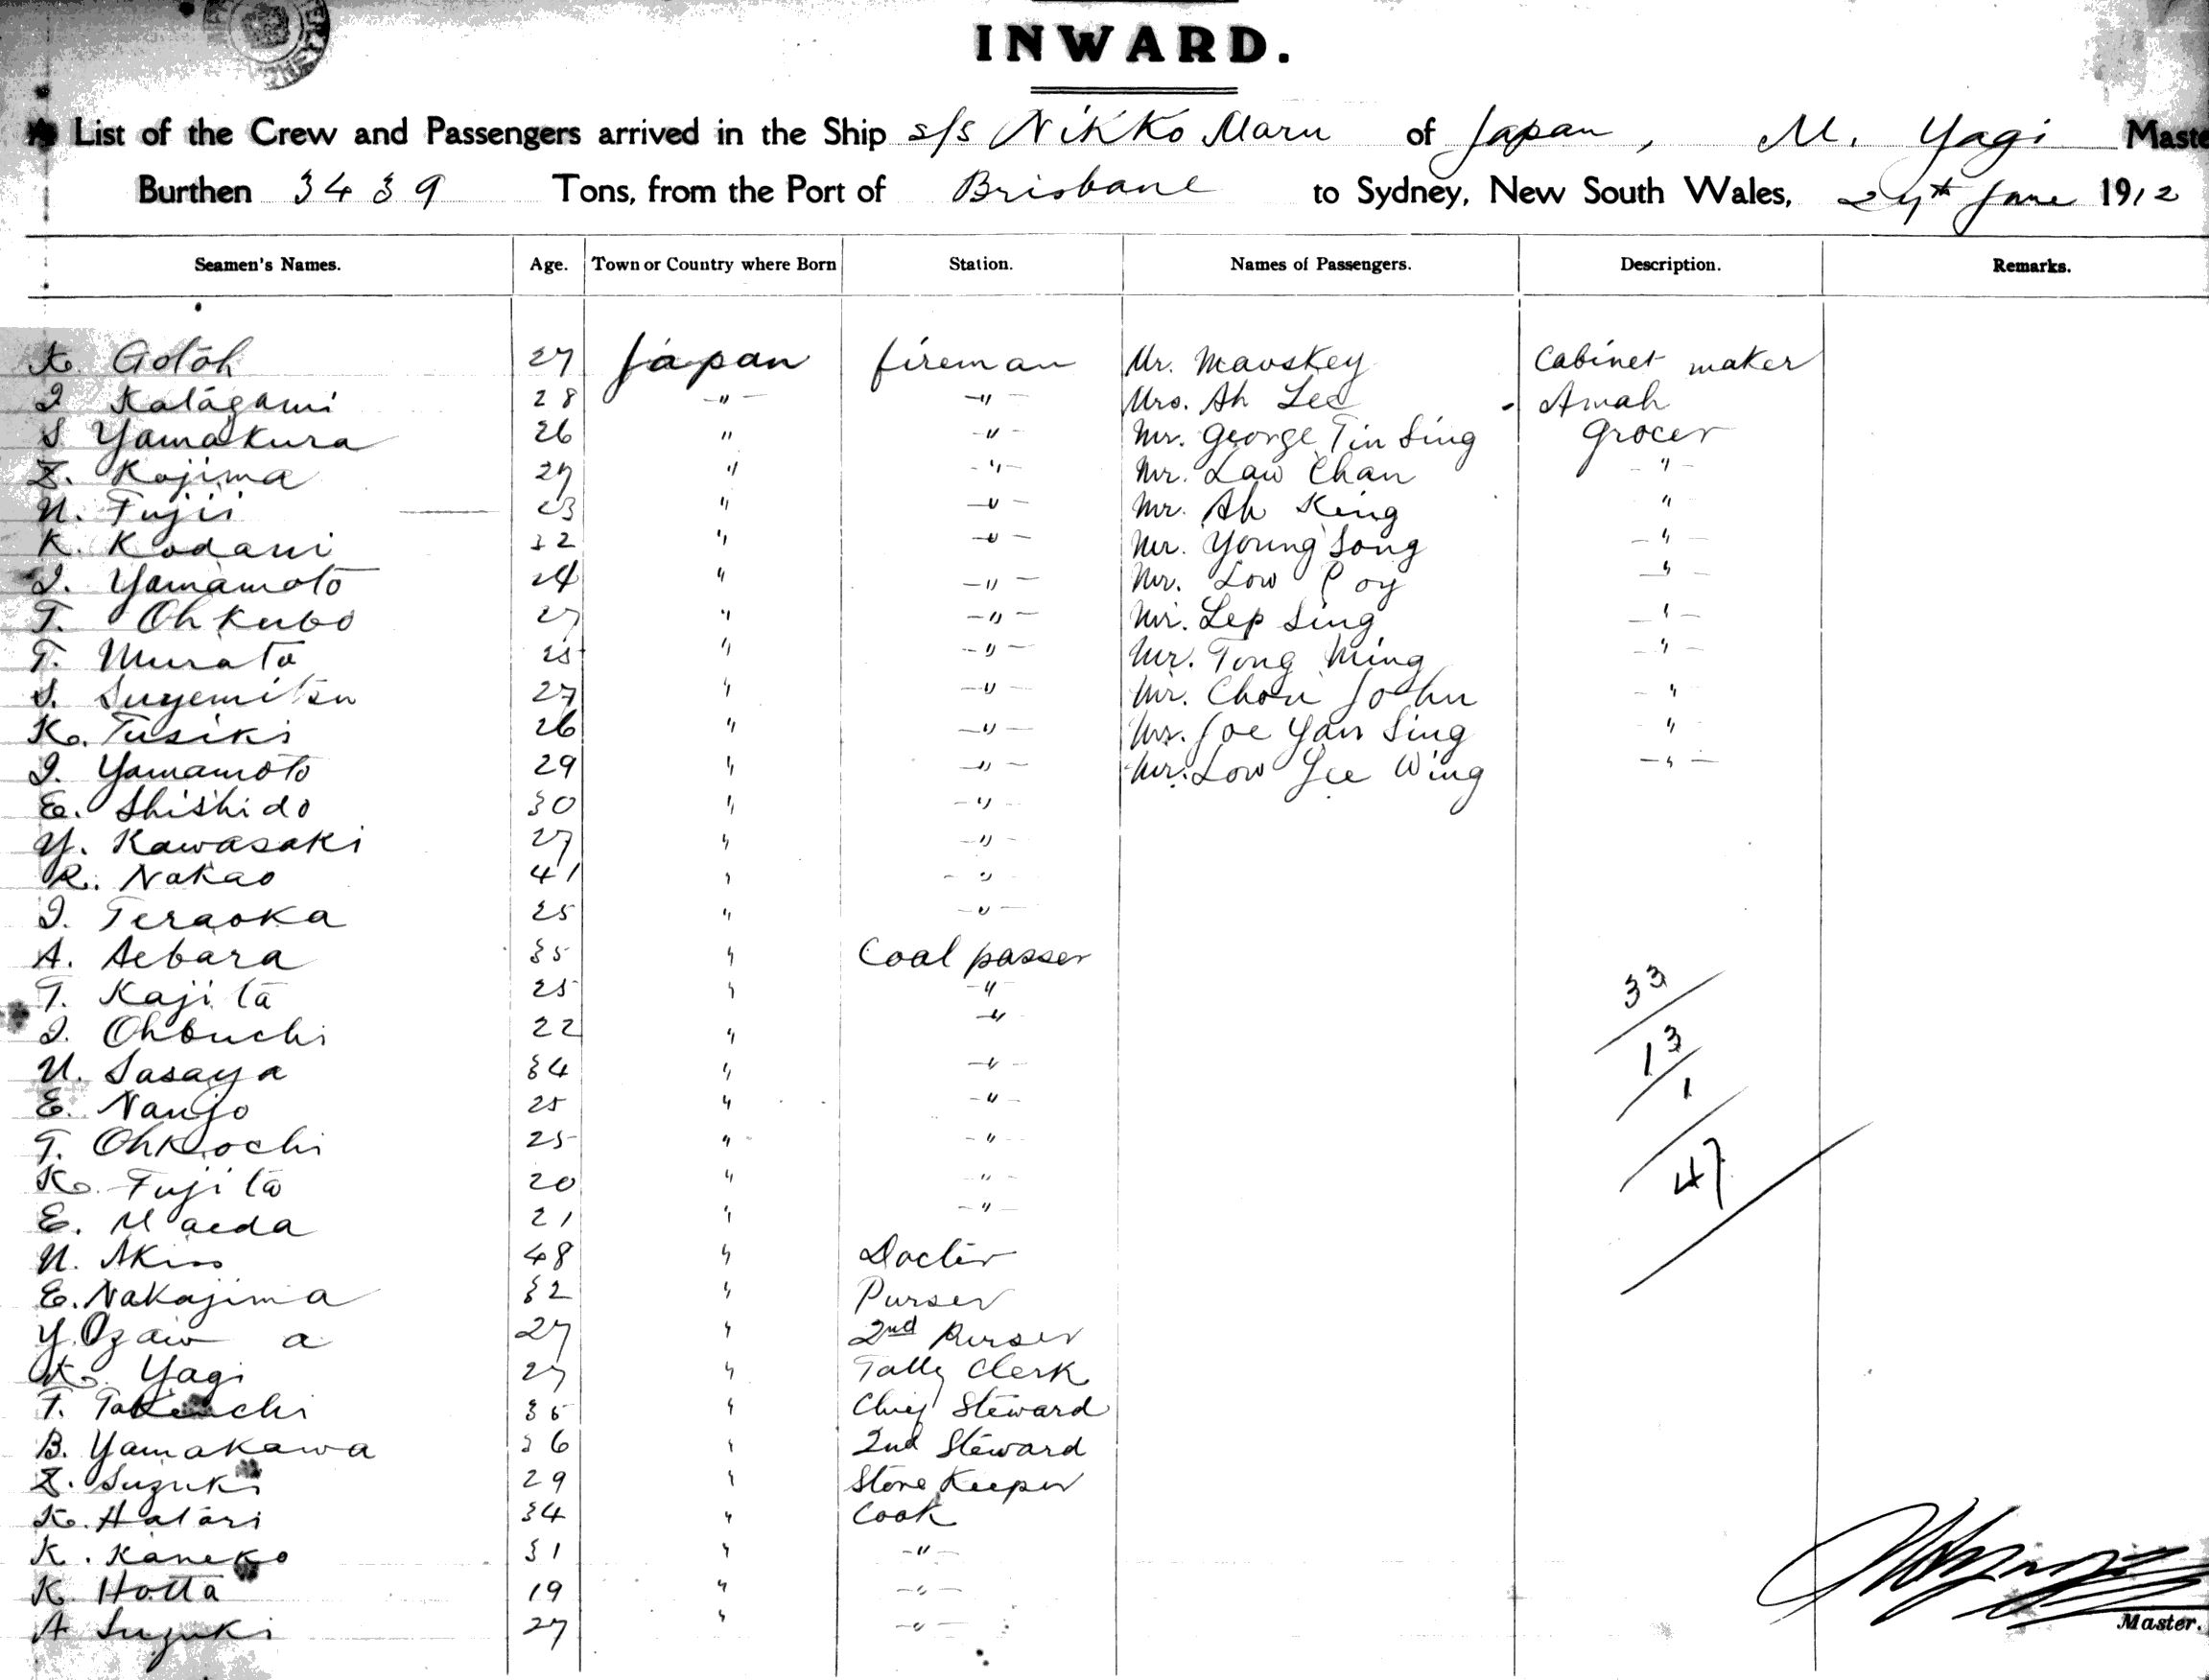 INWARD.
List of the Crew and Passengers arrived in the Ship s/s Nikko Maru of Japan, M. Yagi Maste
Burthen 3439 Tons, from the Port of Brisbane to Sydney, New South Wales, 24th June 1912
Seamen's Names. Age. Town or Country where Born Station. Names of Passengers. Description. Remarks.
K. Gotoh 27 Japan fireman Mr. Mauskey Cabinet maker
I Katagami 28 " " Mrs. Ah Lee Amah
S Yamakura 26 " " Mr. George Tin Sing Grocer
Z. Kojima 27 " " Mr. Law Chan "
N. Fujii 23 " " Mr. Ah King "
K. Kodani 32 " " Mr. Young Song "
I. Yamamoto 24 " " Mr. Low Poy "
T. Ohkubo 27 " " Mr. Lep Sing "
T. Murata 25 " " Mr. Tong Ming "
S. Suyemitsu 27 " " Mr. Chou John "
K. Tusiki 26 " " Mr. Joe Yan Sing "
I. Yamamoto 29 " " Mr. Low Yee Wing "
E. Shishido 30 " "
Y. Kawasaki 27 " "
R. Nakao 41 " "
I. Teraoka 25 " "
A. Aebara 35 " Coal passer
T. Kajita 25 " "
I. Ohbuchi 22 " "
U. Sasaya 34 " "
E. Nanjo 25 " "
T. Ohkochi 25 " "
K. Fujita 20 " "
E. Maeda 21 " "
N. 48 " Doctor
E. Nakajima 32 " Purser
Y. Ozawa 27 " 2nd Purser
K. Yagi 27 " Tally Clerk
T. Takeuchi 35 " Chief Steward
B. Yamakawa 36 " 2nd Steward
Z. Suzuki 29 " Store Keeper
K. Hatori 34 " Cook
K. Kaneko 31 " "
K. Hotta 19 " "
A Suzuki 27 " "
33
13
1
47
Master.